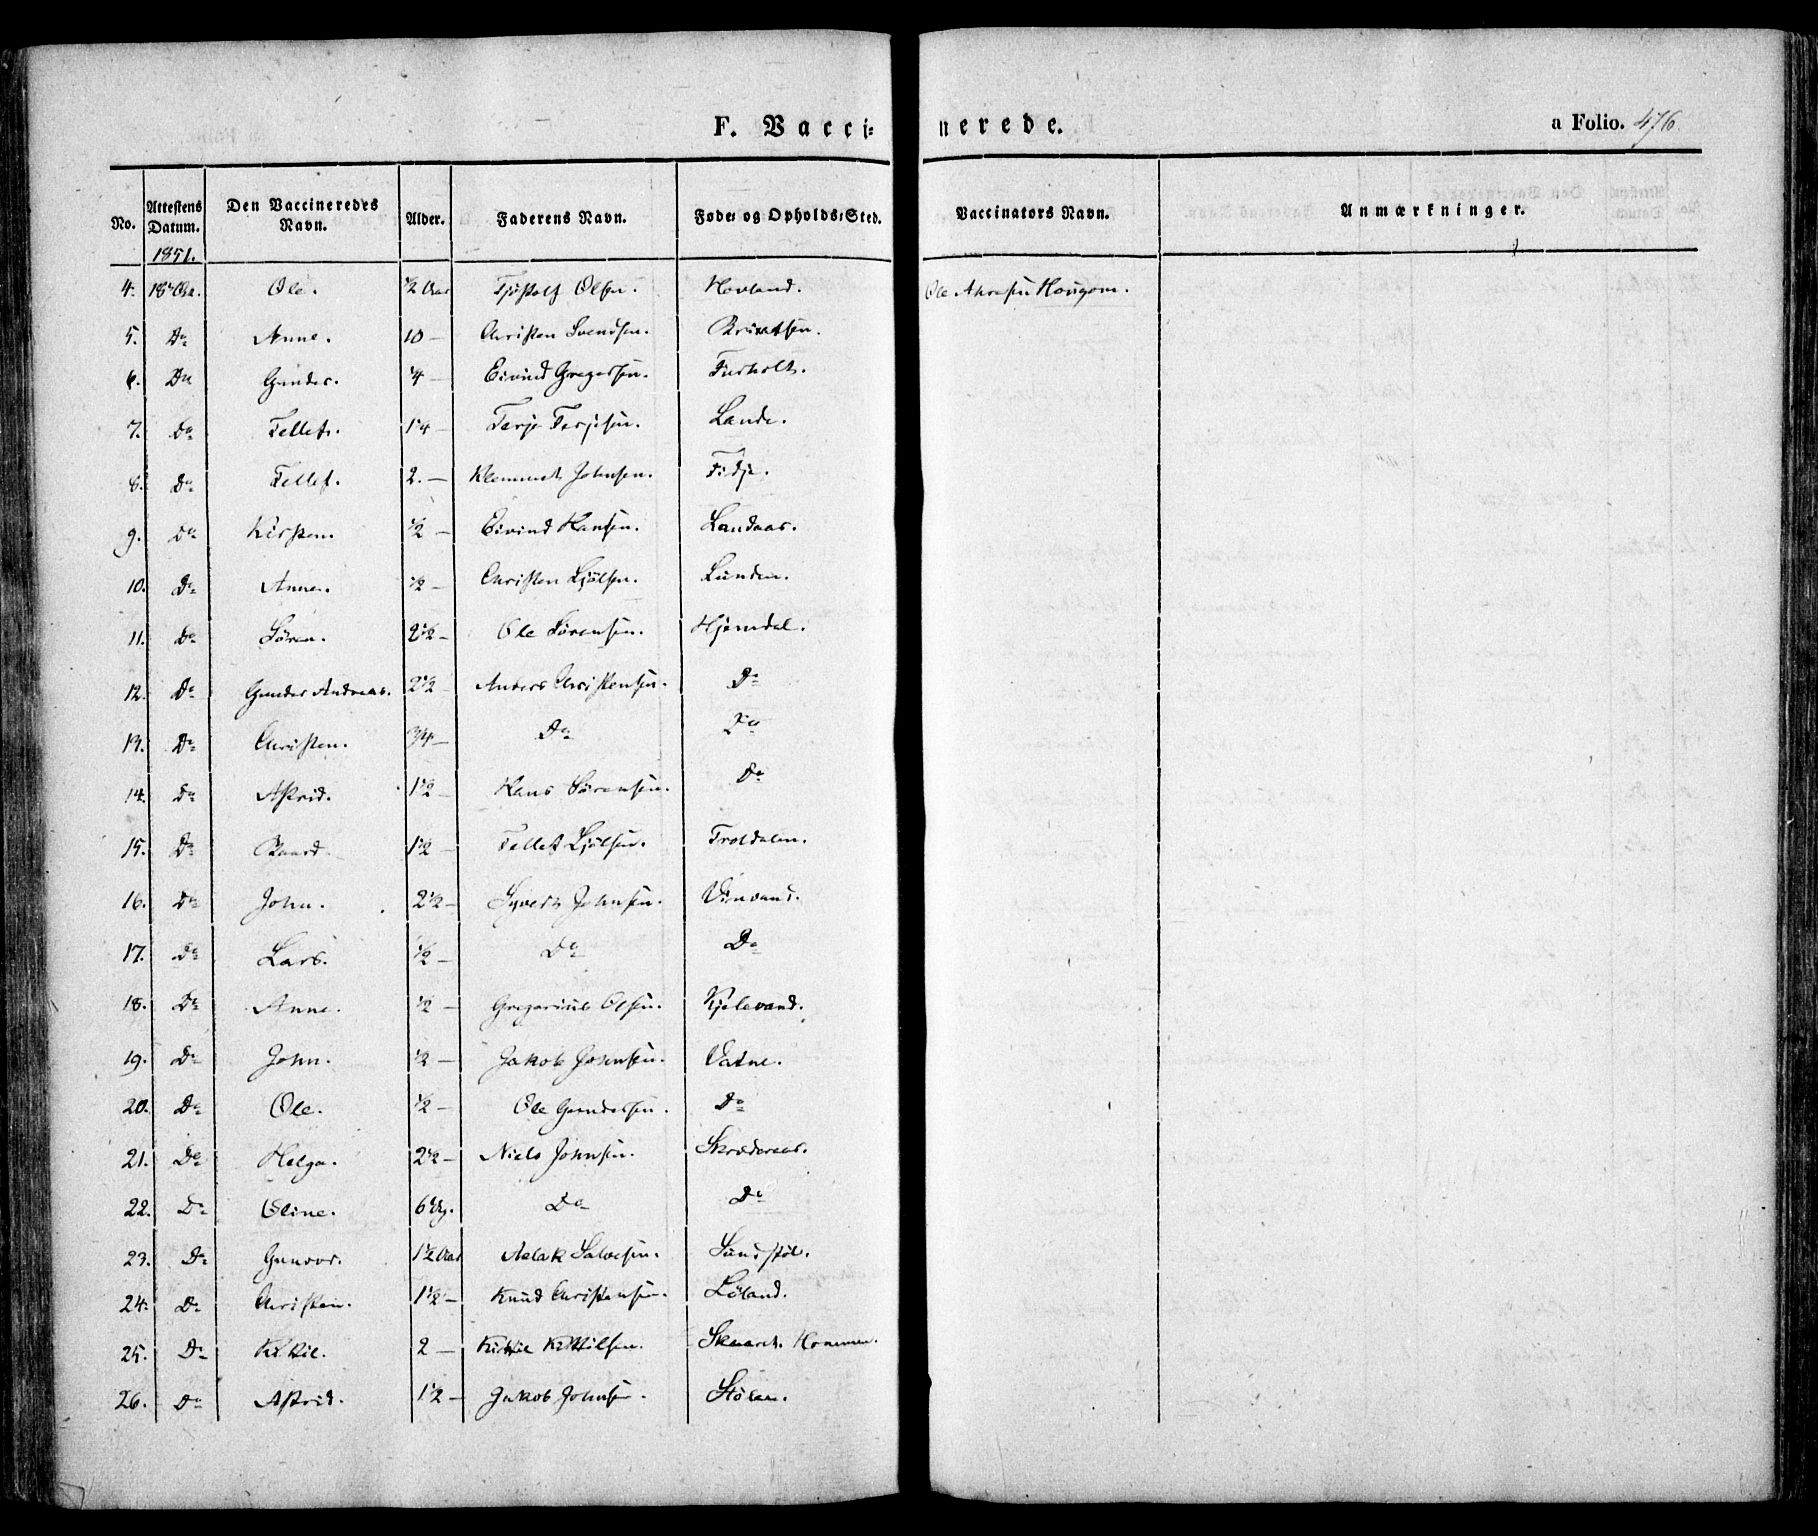 F. Vaccinerede.
a Folio. 476.
No. Attestens Datum. Den Vaccineredes Navn. Alder. Faderens Navn. Føde- og Opholds-Sted. Vaccinators Navn. Anmærkninger.
1851.
4. Ole. ½ Aar Hovland. Ole
5. Do Anne. 10 — Christen Svendsen.
6. Do Gunder. ¼ — Eivind Gregersen. Furholt.
7. Do Tellef. 1¼ — Terje Terjesen. Lande.
8. Do Tellef. 2. — Klemmet Johnsen. Fidje.
9. Do Kirsten. ½ — Eivind Hansen. Landaas.
10. Do Anne. ½ — Christen Ljølsen. Lunden.
11. Do Søren. 2½ — Ole Sørensen. Hjemdal.
12. Do Gunder Andreas. 2½ — Anders Christensen. Do
13. Do Christen. ¾ — Do Do
14. Do Astrid. 1½ — Hans Sørensen. Do
15. Do Baard. 1½ — Tellef Ljølsen. Troldalen.
16. Do John. 2½ — Syvert Johnsen.
17. Do Lars. ½ — Do Do
18. Do Anne. ½ — Gregorius Olsen. Kjelevand.
19. Do John. ½ — Jakob Johnsen. Vatne.
20. Do Ole. ½ — Ole Gundersen. Do
21. Do Helga. 2½ — Niels Johnsen. Skræderaas.
22. Do Oline. 6 Ug. Do Do
23. Do Gunvor. 1½ Aar Aslak Salvesen. Sundstøl.
24. Do Christen. 1½ — Knud Christensen. Løland.
25. Do Kittil. 2 — Kittil Kittilsen. Hommen.
26. Do Astrid. 1½ — Jakob Johnsen. Stølen.